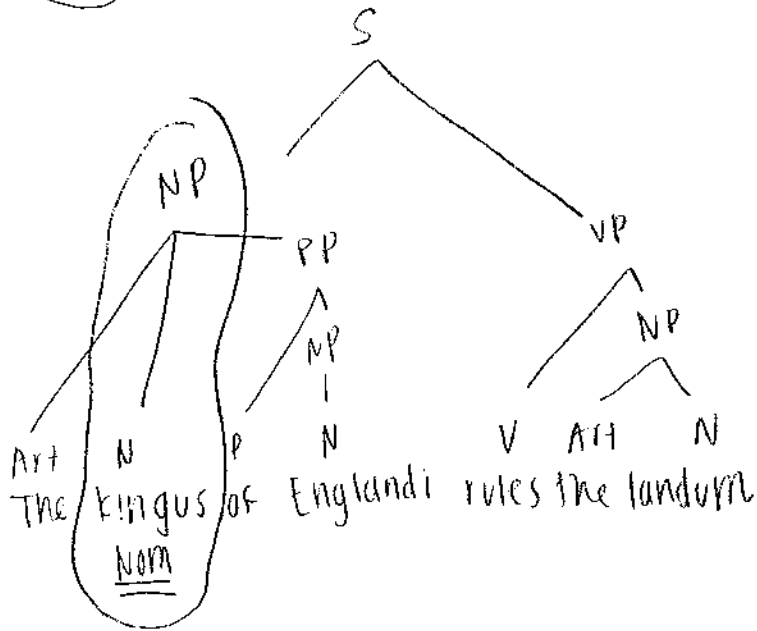 S
NP
VP
PP
NP
NP
Art N P N V Art N
The kingus of Englandi rules the landum
Nom